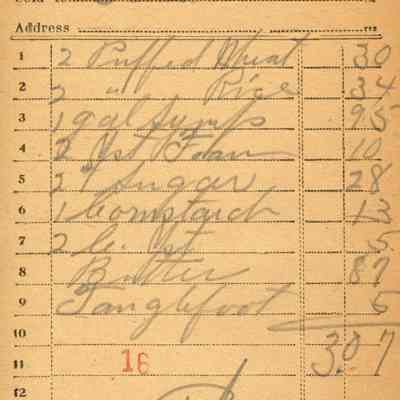 Address
1 2 Puffed Wheat 30
2 2 " Rice 34
3 1 gal Syrup 95
4 2 Yst Foam 10
5 2 # Sugar 28
6 1 Cornstarch 13
7 2 5
8 Butter 87
9 Tanglefoot 5
10
11 16 3.07
12